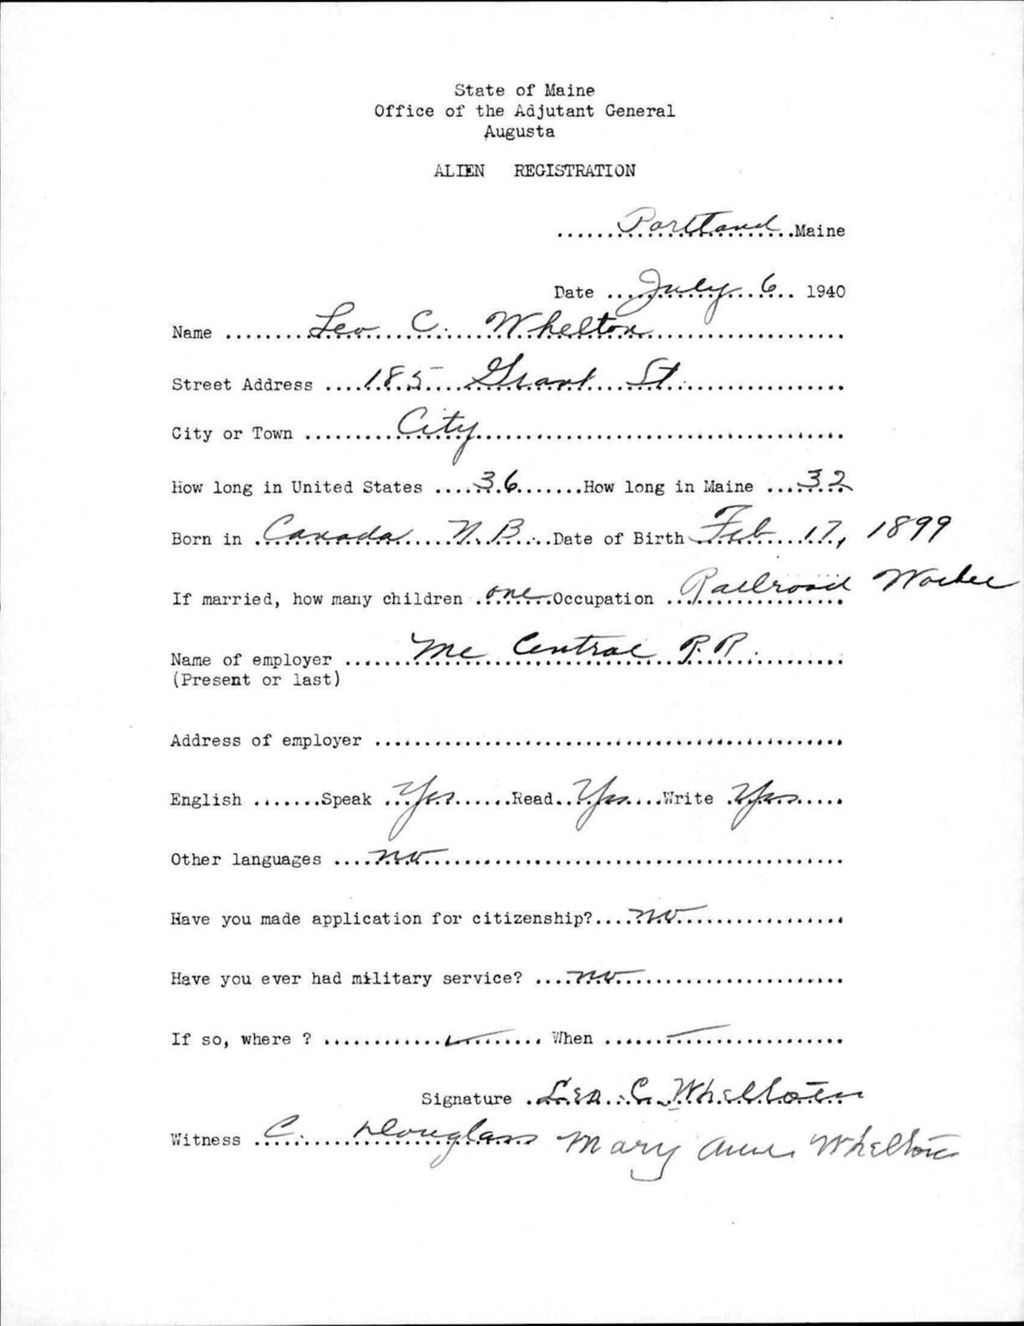 State of Maine
Office of the Adjutant General
Augusta
ALIEN REGISTRATION
......Portland..Maine
Date ...July 6... 1940
Name ........Leo C. Whelton....................
Street Address ....185 Grant St..................
City or Town .........City......................................
How long in United States ....36.......How long in Maine ...32...
Born in .Canada N.B...Date of Birth Feb 17, 1899
If married, how many children .one..Occupation ..Railroad Worker
Name of employer ......Me Central R.R...........
(Present or last)
Address of employer ................................................
English .......Speak ..Yes......Read..Yes....Write .Yes.....
Other languages ....no..........................................
Have you made application for citizenship?....no.................
Have you ever had military service? ....no........................
If so, where ? ...................... When .........................
Signature .Leo C. Whelton
Witness .C. Douglass Mary Anne Whelton